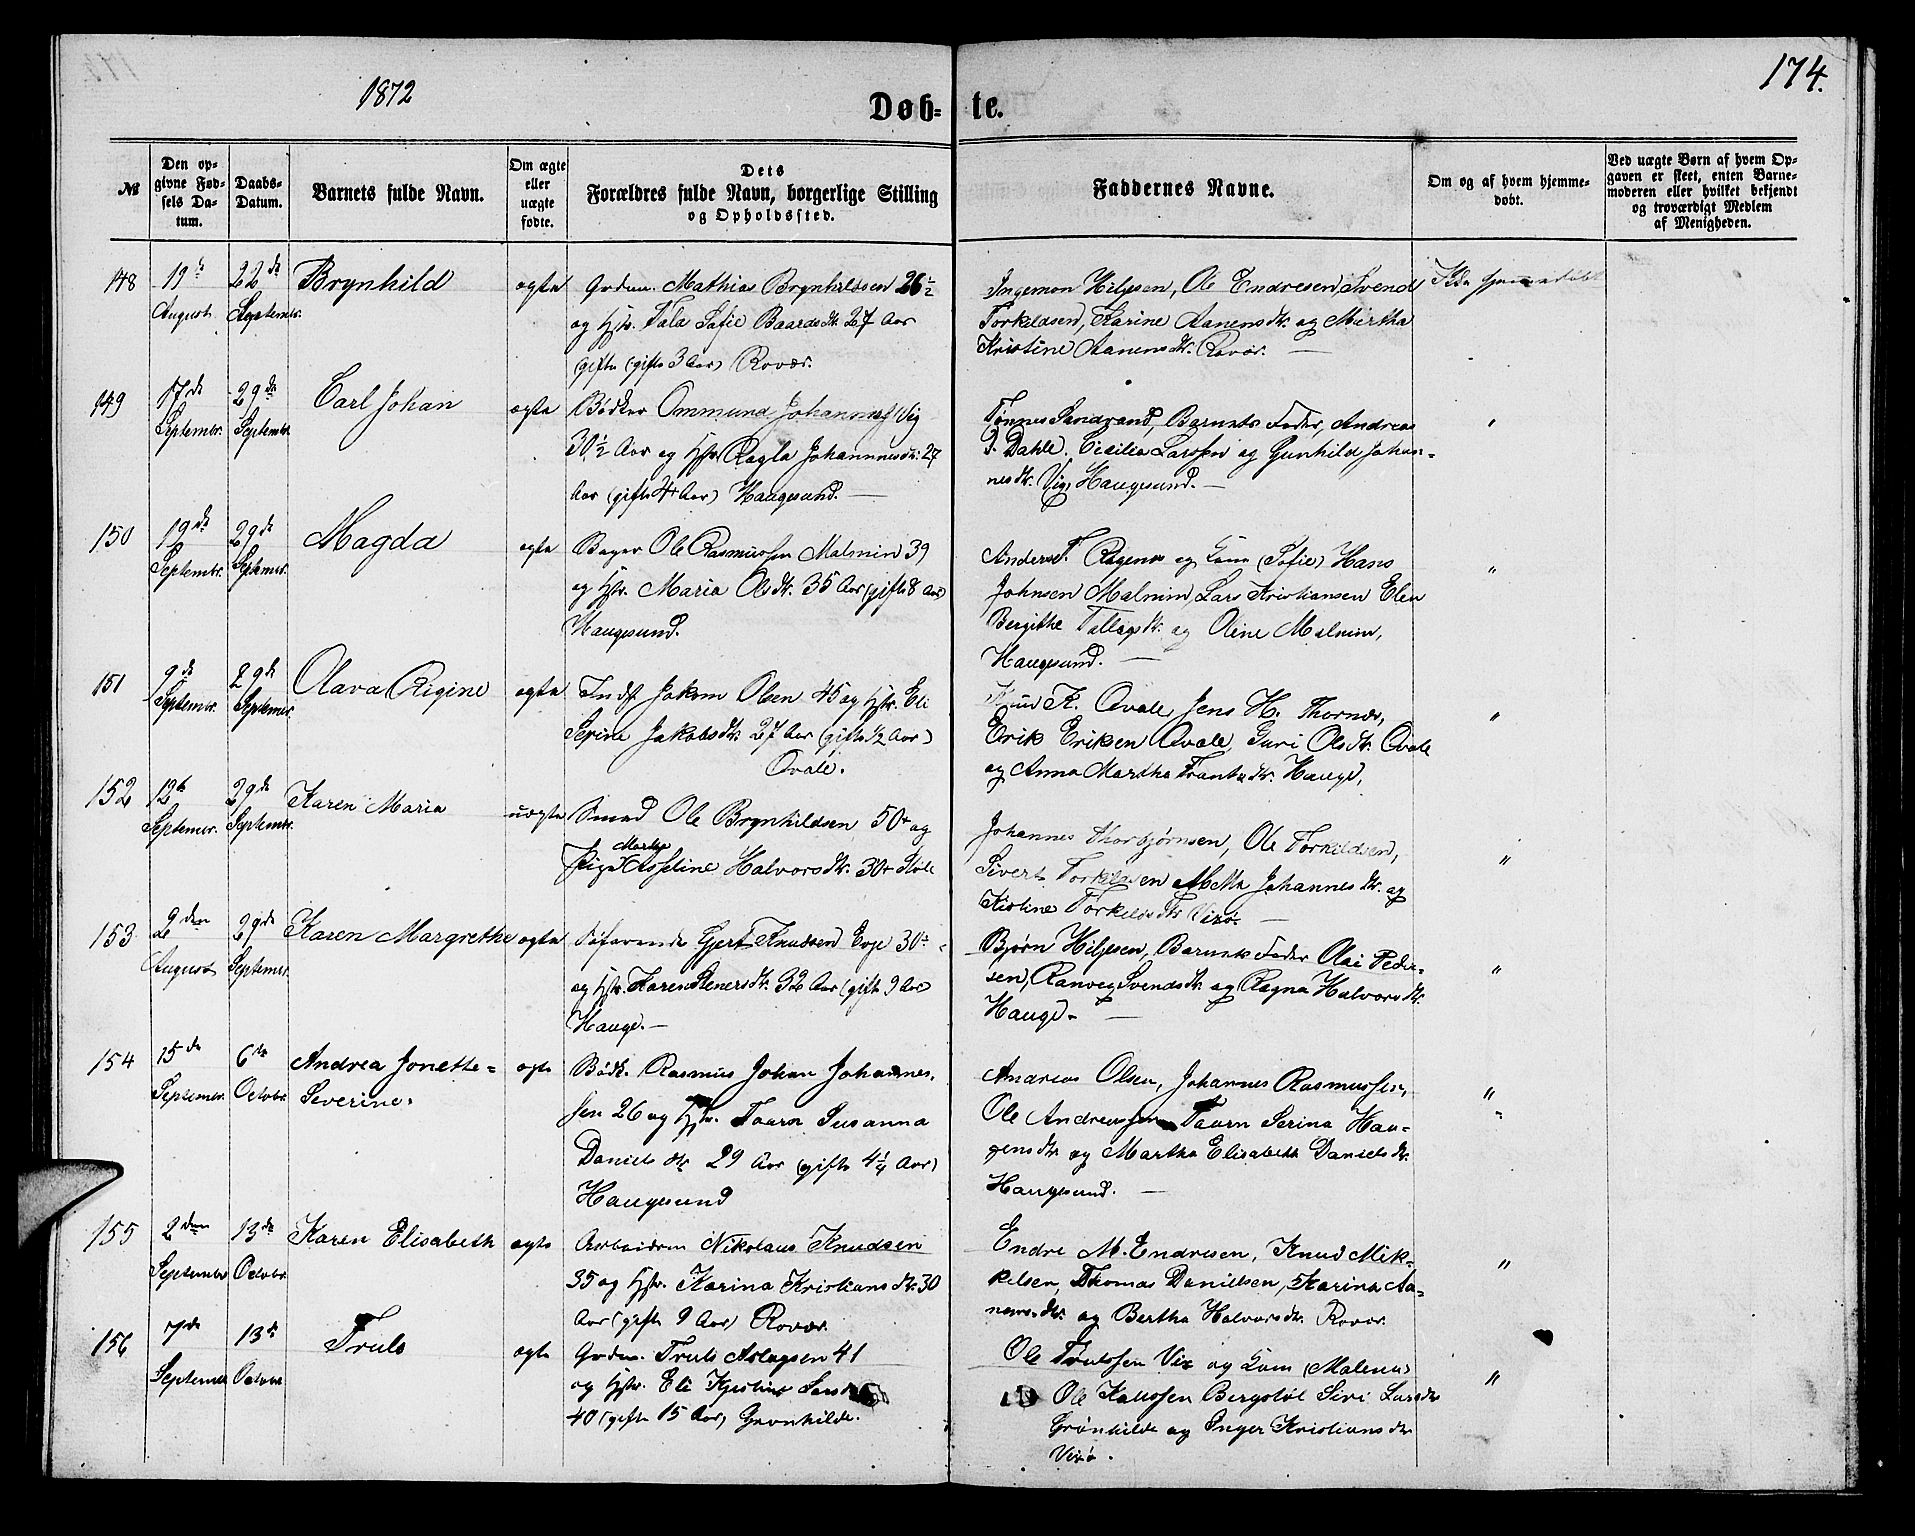 1872
174.
Døb=
te.
№
Den op=
givne Fød=
sels Da=
tum.
Daabs=
Datum.
Barnets fulde Navn.
Om ægte
eller
uægte
fødte.
Dets
Forældres fulde Navn, borgerlige Stilling
og Opholdssted.
Faddernes Navne.
Om og af hvem hjemme=
døbt.
Ved uægte Børn af hvem Op=
gaven er skeet, enten Barne=
moderen eller hvilket bekjendt
og troværdigt Medlem
af Menigheden.
148
19de
August
22de
Septembr.
Brynhild
ægte
Grdm. Mathias Brynhildsen 26½
og Hstr. Tala Sofie Baardsdtr. 27 Aar
gifte (gifte 3 Aar) Rovær.
Ingemon Hiljesen, Ole Endresen, Svend
Torkildsen, Karine Aanensdtr. og Martha
Kristine Aanensdtr. Rovær. —
149
17de
Septembr.
29de
Septembr.
Carl Johan
ægte
Bødker Ommund Johannes. Vig
30½ Aar og Hstr. Ragla Johannesdtr. 27
Aar (gifte 4 Aar) Haugesund. —
Tønnes Sandzand, Barnets Fader, Andreas
J. Dahle. Cicilia Larssen og Gunhild Johan=
nesdtr. Vig, Haugesund. —
"
150
19de
Septembr.
29de
Septembr.
Magda
ægte
Bager Ole Rasmussen Malmin 39
og Hstr. Maria Olsdtr. 35 Aar (gifte 8 Aar)
Haugesund.
Anders T. Ragens og Kone (Sofie) Hans
Johnsen Malmin, Lars Kristiansen Elen
Bergithe Tollagsdtr. og Oline Malmin,
Haugesund. —
"
151
9de
Septembr.
29de
Septembr.
Olava Rigine
ægte
Indst Jakom Olsen 45 og Hstr. Eli
Serine Jakobsdtr. 27 Aar (gifte ½ Aar)
Qvale.
Knud K. Qvale, Jens H. Thornæs,
Erik Eriksen Qvale, Guri Olsdtr. Qvale
og Anna Martha Frantzdtr. Hauge,
"
152
12te
Septembr.
29de
Septembr.
Karen Maria
uægte
Smed Ole Brynhildsen 50 og
Pige Marthe Asseline Halvorsdtr. 30
Johannes Thorbjørnsen, Ole Torkildsen,
Sivert Torkildsen Metta Johannesdtr. og
Kistine Torkildsdtr. Vixø. —
"
153
2den
August
29de
Septembr.
Karen Margrethe
ægte
Søfarende Gjert Knudsen Eoje 30
og Hstr. Karen Stenersdtr. 32 Aar (gifte 9 Aar)
Hauge. —
Bjørn Hiljesen, Barnets Fader Olai Peder=
sen, Ranveg Svendsdtr. og Ragna Halvorsdtr.
Hauge. —
"
154
15de
Septembr.
6te
Octobr.
Andrea Jonette=
Severine.
ægte
Bødk. Rasmus Johan Johannes.
sen 26 og Hstr. Taarn Susanna
Danielsdtr 29 Aar (gifte 4¼ Aar)
Haugesund
Andreas Olsen, Johannes Rasmussen,
Ole Andreassen Taarn Serina Hau=
gensdtr. og Martha Elisabeth Danielsdtr.
Haugesund. —
"
155
2den
Septembr
13de
Octobr.
Karen Elisabeth
ægte
Arbeidsm Nikolaus Knudsen
35 og Hstr. Karina Kristiansdtr. 30
Aar (gifte 9 Aar) Rovær.
Endre M. Endresen, Knud Mik=
kelsen, Thomas Danielsen, Karina Aa=
nensdtr. og Bertha Halvorsdtr. Rovær.
"
156
7de
Septembr
13de
Octobr.
Truls
ægte
Grdm. Truls Aslagsen 41
og Hstr. Eli Kjistine
40 (gifte 15 Aar) Grønhilde.
Ole Trulssen Vix og Kone (Malena)
Ole Knussen Bergstøl Siri Larsdtr
Grønhilde og Inger Kristiansdtr
Vixø.
"